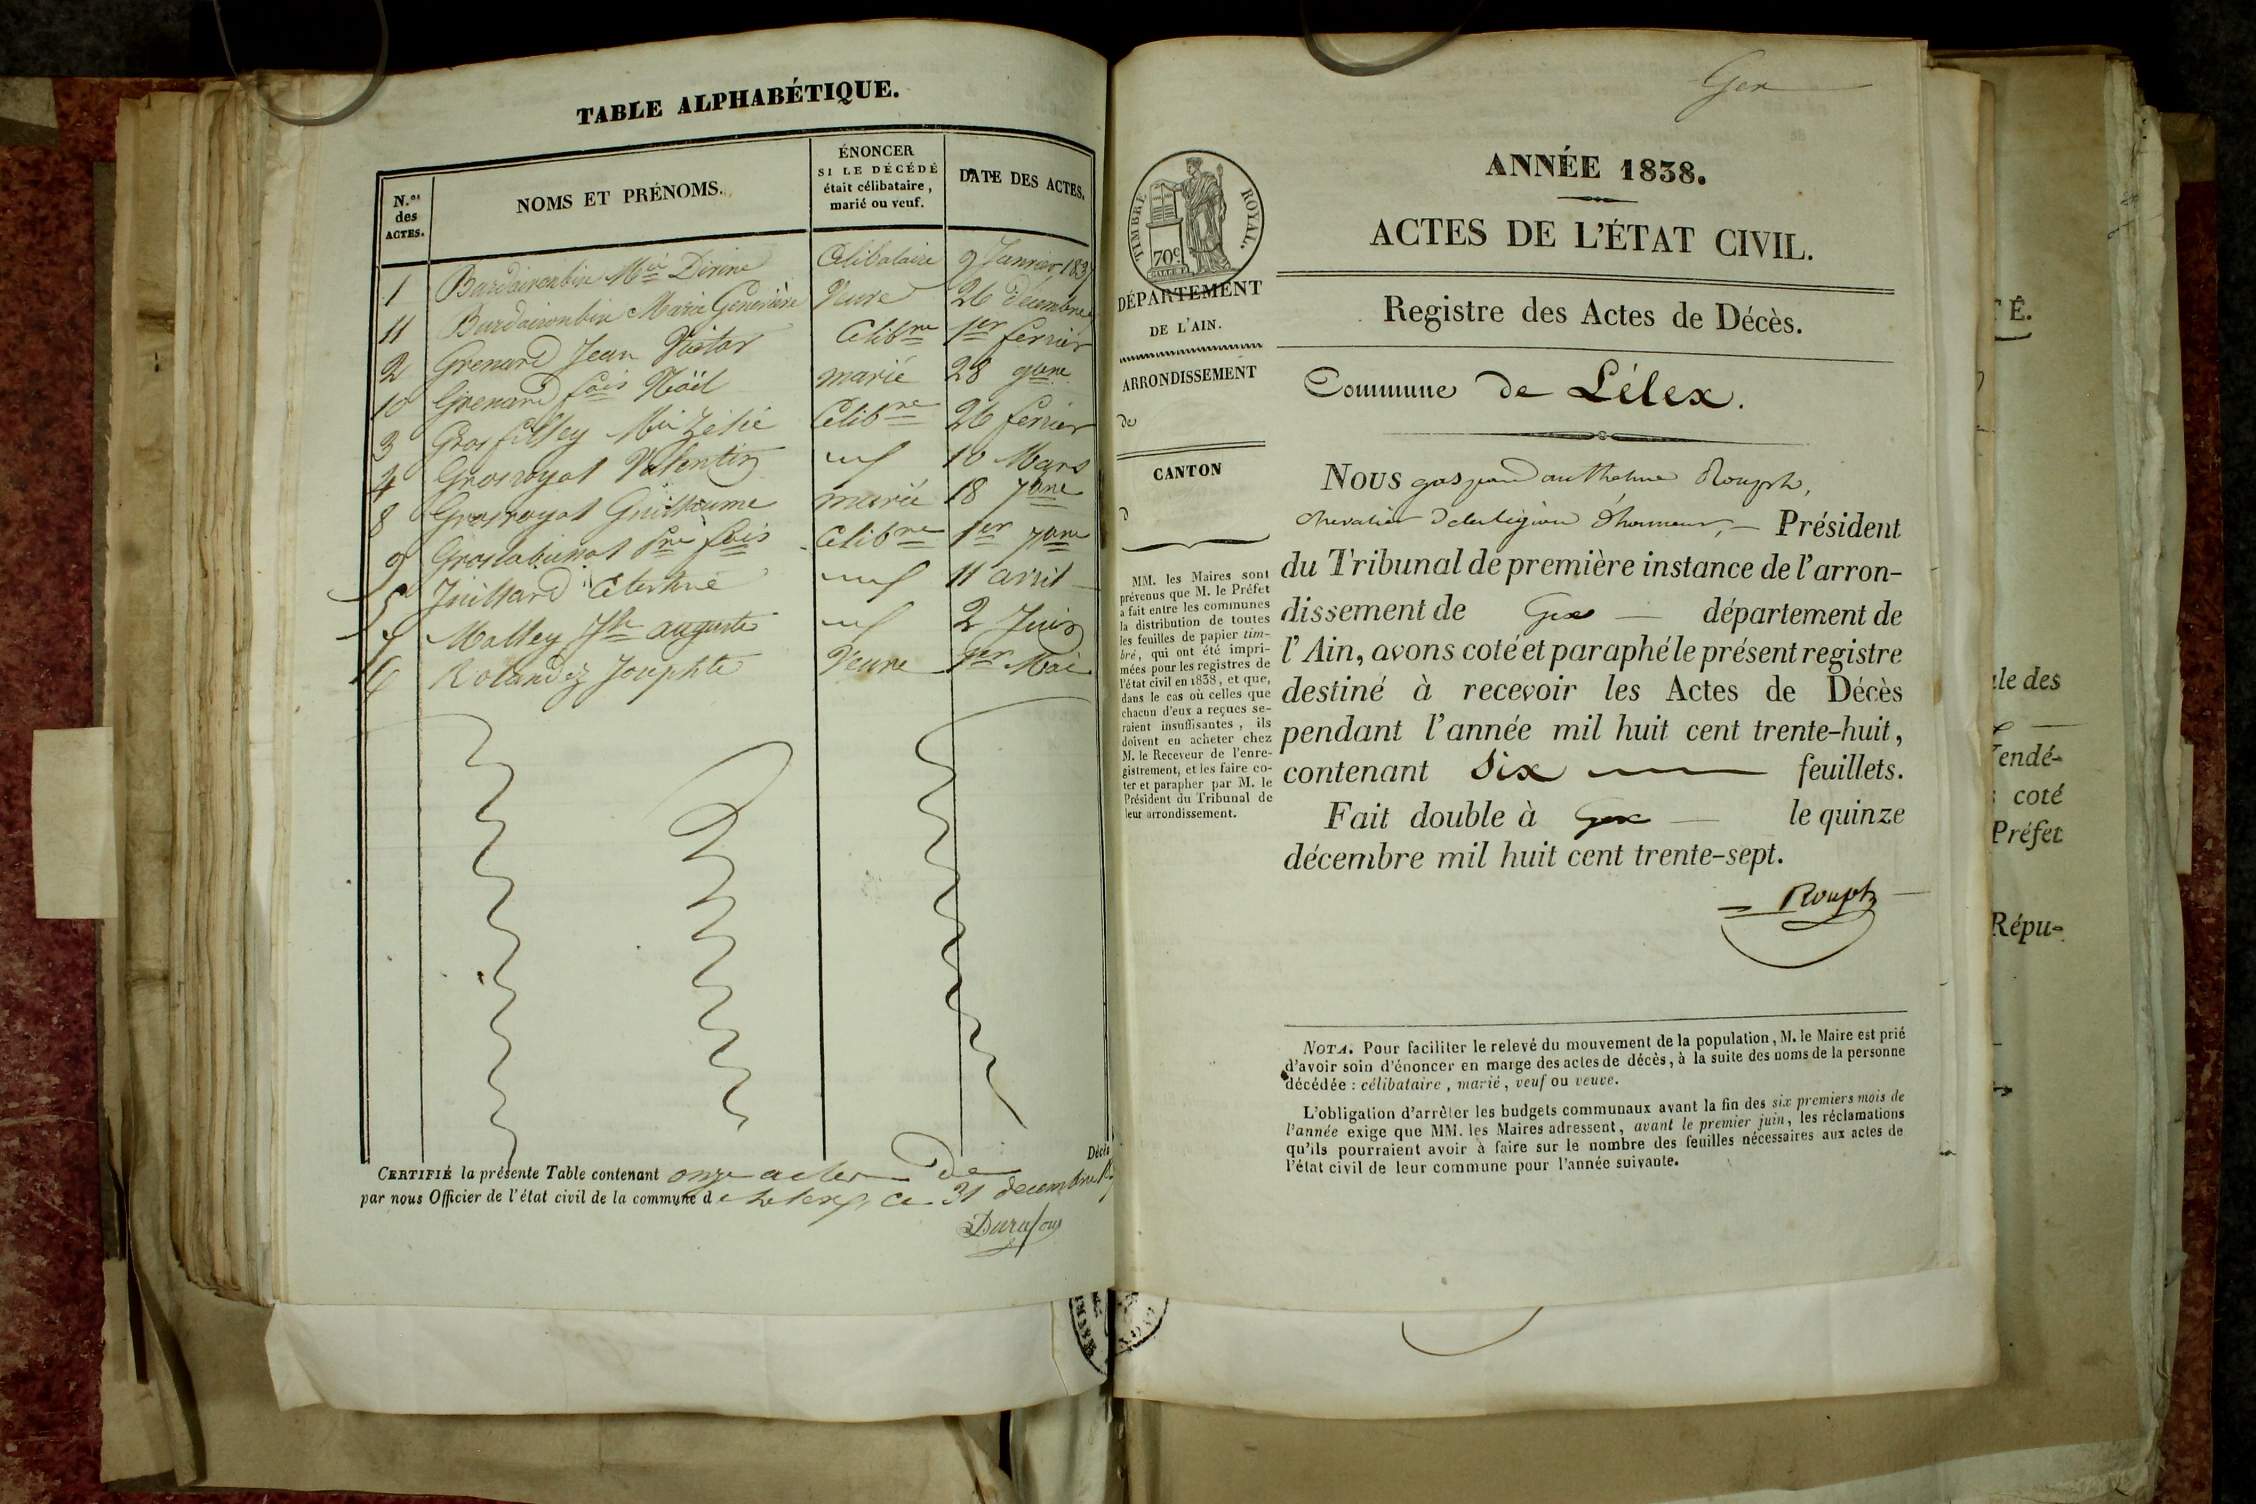 TABLE ALPHABÉTIQUE.
N.os des ACTES.
NOMS ET PRÉNOMS.
ÉNONCER
SI LE DÉCÉDÉ
était célibataire,
marié ou veuf.
DATE DES ACTES.
1 Mie Celibataire 9 Janvier 1837
11 Marie Geneviève Veuve 26 décembre
2 Grenard Jean Victor Celibre 1er fevrier
10 Grenard fois Noël marié 28 9bre
3 Grosfilley Mie Zelie Celibre 26 fevrier
4 Grosroyat Valentin 10 Mars
8 Grosroyat Guillaume marié 18 7bre
9 fois Celibre 1er 7bre
5 Juilland 11 avril
7 Mathey Jh auguste 2 Juin
6 Rolandez Josephte Veuve 1er Mai
Décès
CERTIFIÉ la présente Table contenant onze actes de
par nous Officier de l'état civil de la commune de Lelex, ce 31 decembre
Gex
TIMBRE ROYAL.
70c
ANNÉE 1838.
ACTES DE L'ÉTAT CIVIL.
Registre des Actes de Décès.
Commune de Lélex.
DÉPARTEMENT
DE L'AIN.
ARRONDISSEMENT
de
CANTON
d
MM. les Maires sont
prévenus que M. le Préfet
a fait entre les communes
la distribution de toutes
les feuilles de papier tim-
bré, qui ont été impri-
mées pour les registres de
l'état civil en 1838, et que,
dans le cas où celles que
chacun d'eux a reçues se-
raient insuffisantes, ils
doivent en acheter chez
M. le Receveur de l'enre-
gistrement, et les faire co-
ter et parapher par M. le
Président du Tribunal de
leur arrondissement.
Nous gaspard anthelme Rouph,
chevalier de la légion d'honneur, — Président
du Tribunal de première instance de l'arron-
dissement de Gex — département de
l'Ain, avons coté et paraphé le présent registre
destiné à recevoir les Actes de Décès
pendant l'année mil huit cent trente-huit,
contenant Six feuillets.
Fait double à Gex — le quinze
décembre mil huit cent trente-sept.
Rouph
NOTA. Pour faciliter le relevé du mouvement de la population, M. le Maire est prié
d'avoir soin d'énoncer en marge des actes de décès, à la suite des noms de la personne
décédée : célibataire, marié, veuf ou veuve.
L'obligation d'arrêter les budgets communaux avant la fin des six premiers mois de
l'année exige que MM. les Maires adressent, avant le premier juin, les réclamations
qu'ils pourraient avoir à faire sur le nombre des feuilles nécessaires aux actes de
l'état civil de leur commune pour l'année suivante.
É.
le des
endé-
coté
Préfet
Répu-